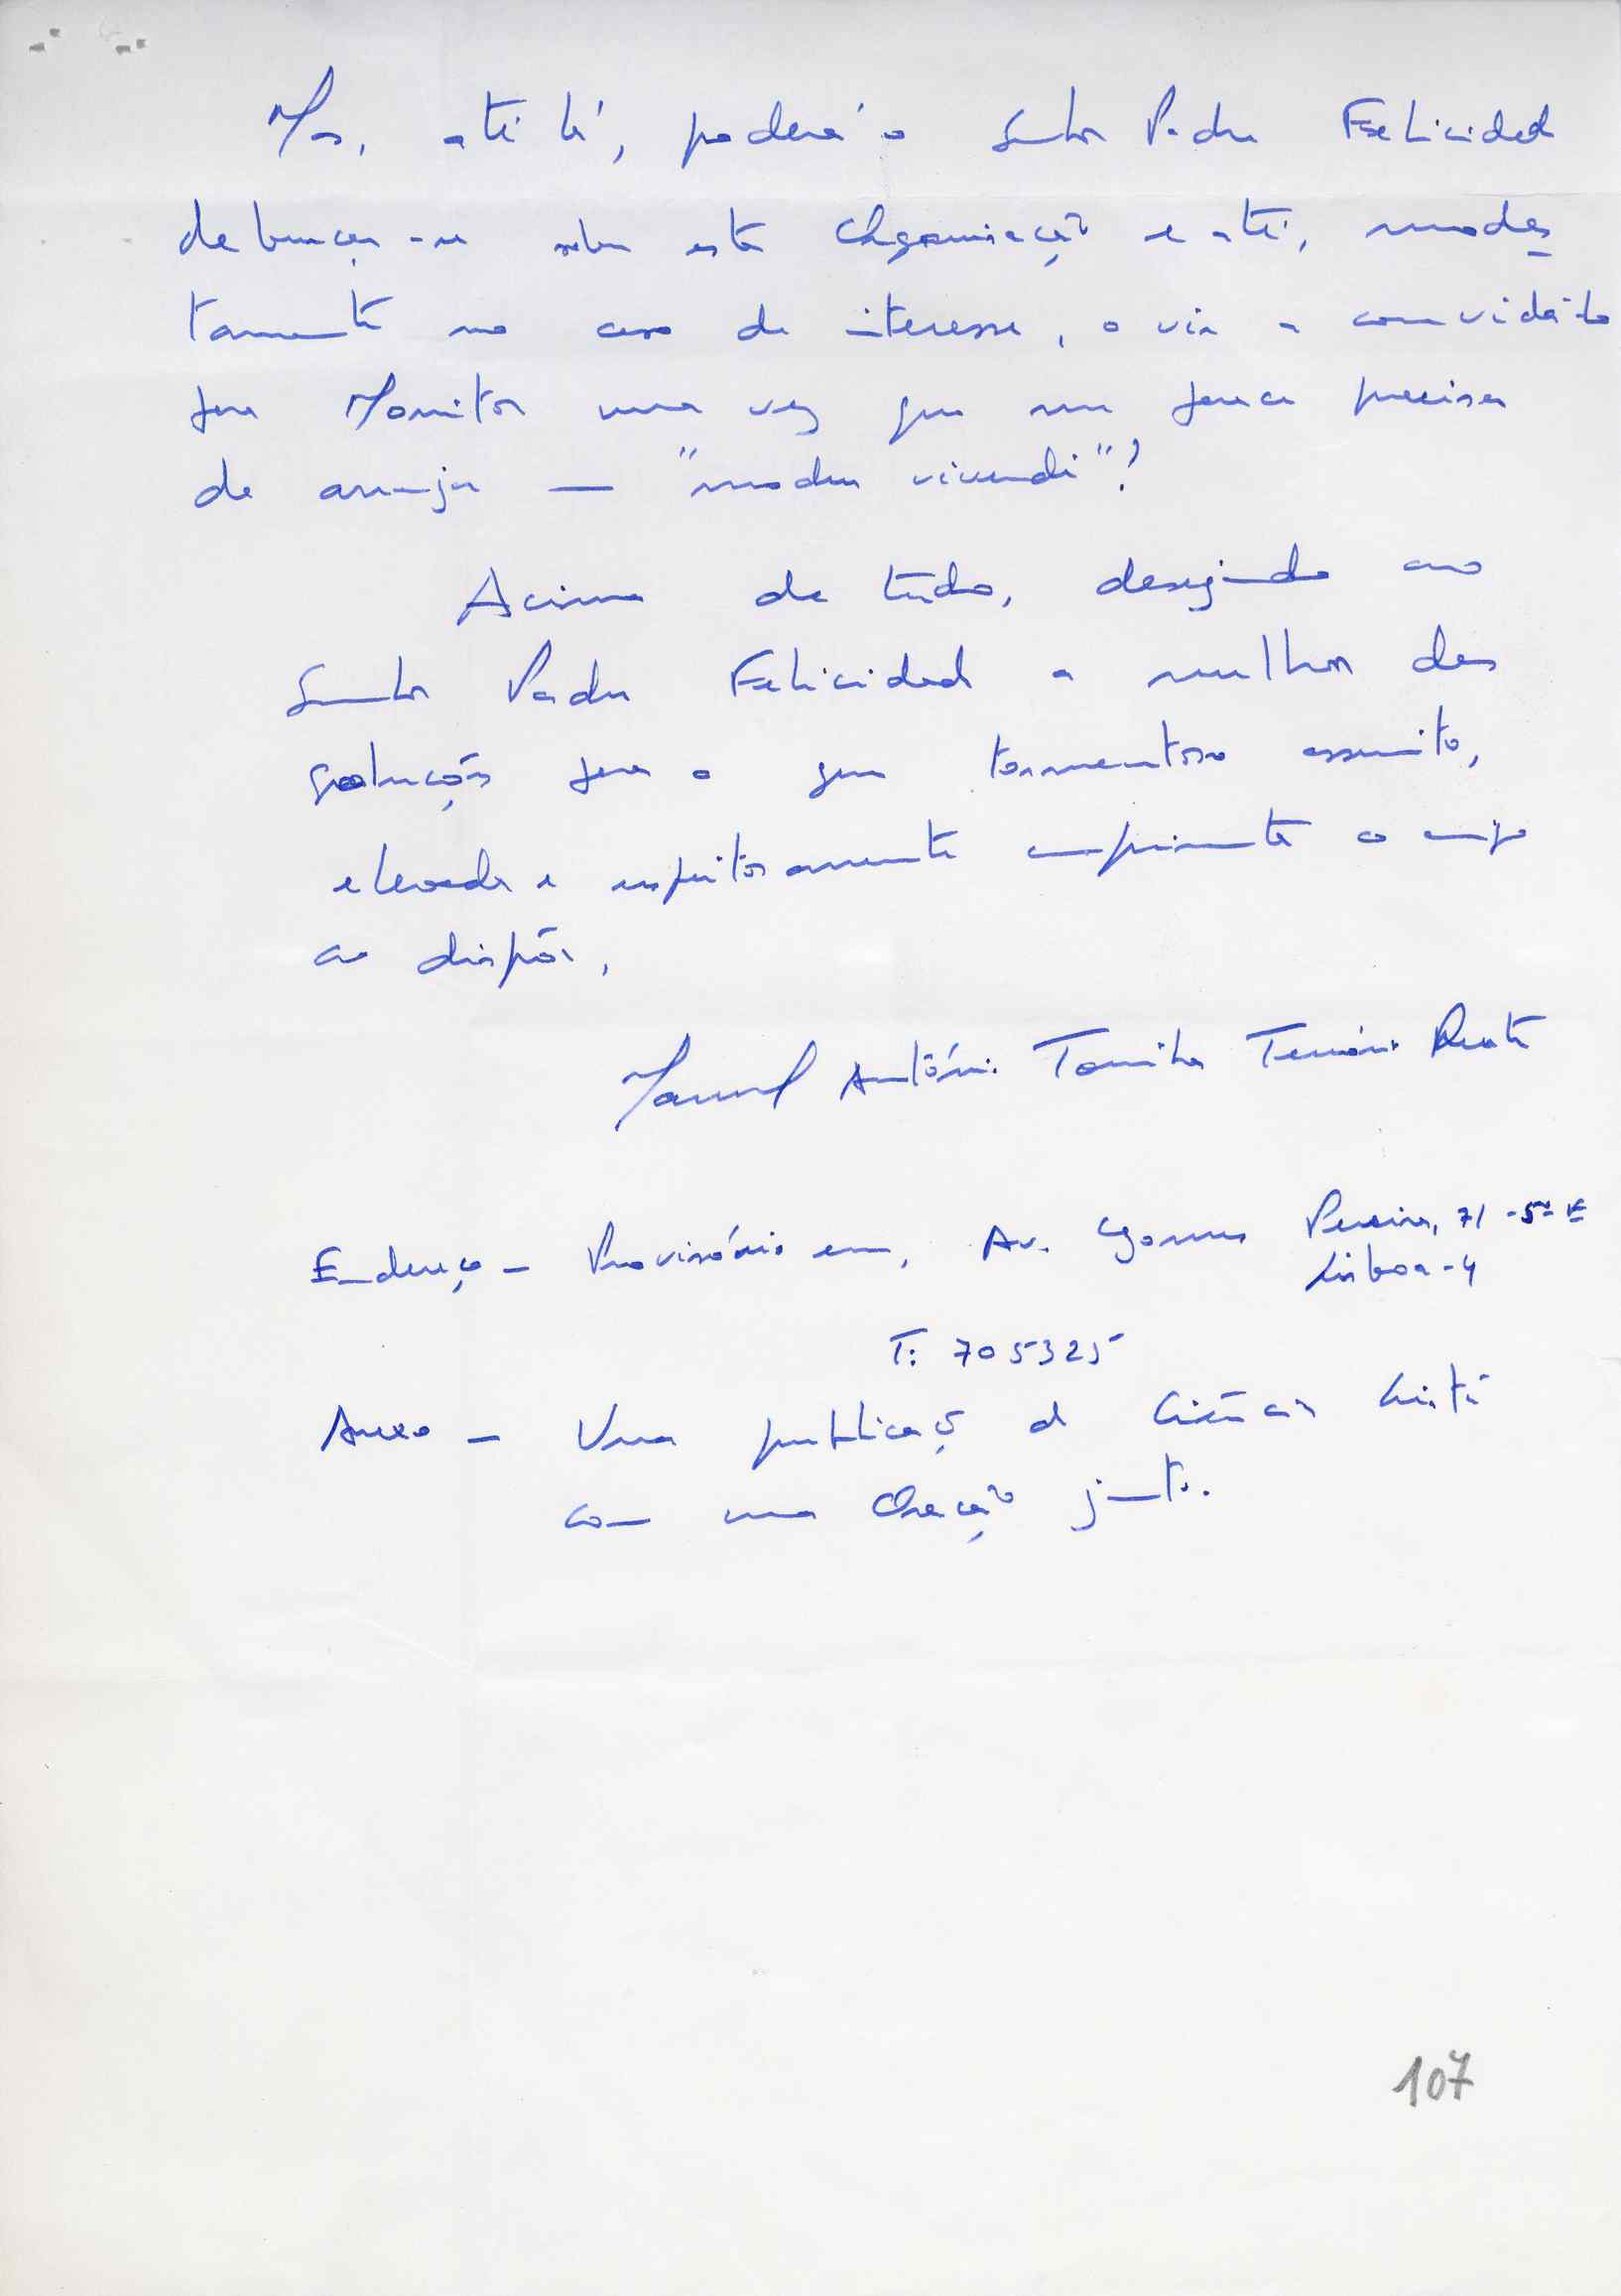 Mas, até lá, poderá o Senhor Padre Felicidade
debruçar-se sobre esta Organização e até, modes
tamente no caso de interesse, o vir a convidá-lo
para Monitor uma vez que me parece precisar
de arranjar — "modus vivendi"?
Acima de tudo, desejando ao
Senhor Padre Felicidade a melhor das
soluções para o seu tormentoso assunto,
elevada e respeitosamente cumprimenta o amigo
ao dispôr,
Manuel António
Endereço — Provisório em, Av. Gomes Pereira, 71 - 5º E
Lisboa - 4
T: 705325
Anexo — Uma publicação de Ciência Cristã
com uma Oração junto.
107